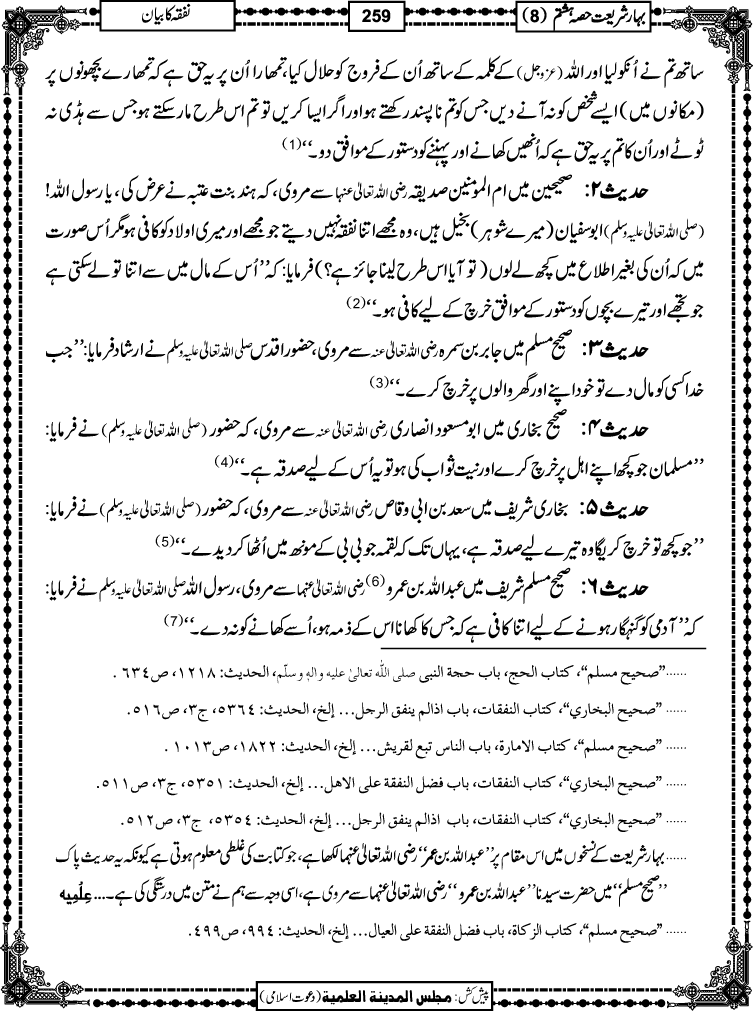 بہارِ شریعت حصہ ہشتم (8)
259
نفقہ کا بیان
ساتھ تم نے اُنکو لیا اور اللہ (عزوجل) کے کلمہ کے ساتھ اُن کے فروج کو حلال کیا، تمھارا اُن پر یہ حق ہے کہ تمھارے بچھونوں پر
(مکانوں میں) ایسے شخص کو نہ آنے دیں جس کو تم ناپسند رکھتے ہو اور اگر ایسا کریں تو تم اس طرح مار سکتے ہو جس سے ہڈی نہ
ٹوٹے اور اُن کا تم پر یہ حق ہے کہ اُنھیں کھانے اور پہننے کو دستور کے موافق دو۔‘‘(1)
حدیث ۲: صحیحین میں ام المؤمنین صدیقہ رضی اللہ تعالیٰ عنہا سے مروی، کہ ہند بنت عتبہ نے عرض کی، یا رسول اللہ!
(صلی اللہ تعالیٰ علیہ وسلم) ابوسفیان (میرے شوہر) بخیل ہیں، وہ مجھے اتنا نفقہ نہیں دیتے جو مجھے اور میری اولاد کو کافی ہو مگر اُس صورت
میں کہ اُن کی بغیر اطلاع میں کچھ لے لوں (تو آیا اس طرح لینا جائز ہے؟) فرمایا: کہ ’’اُس کے مال میں سے اتنا تو لے سکتی ہے
جو تجھے اور تیرے بچوں کو دستور کے موافق خرچ کے لیے کافی ہو۔‘‘(2)
حدیث ۳: صحیح مسلم میں جابر بن سمرہ رضی اللہ تعالیٰ عنہ سے مروی، حضور اقدس صلی اللہ تعالیٰ علیہ وسلم نے ارشاد فرمایا: ’’جب
خدا کسی کو مال دے تو خود اپنے اور گھر والوں پر خرچ کرے۔‘‘(3)
حدیث ۴: صحیح بخاری میں ابومسعود انصاری رضی اللہ تعالیٰ عنہ سے مروی، کہ حضور (صلی اللہ تعالیٰ علیہ وسلم) نے فرمایا:
’’مسلمان جو کچھ اپنے اہل پر خرچ کرے اور نیت ثواب کی ہو تو یہ اُس کے لیے صدقہ ہے۔‘‘(4)
حدیث ۵: بخاری شریف میں سعد بن ابی وقاص رضی اللہ تعالیٰ عنہ سے مروی، کہ حضور (صلی اللہ تعالیٰ علیہ وسلم) نے فرمایا:
’’جو کچھ تو خرچ کریگا وہ تیرے لیے صدقہ ہے، یہاں تک کہ لقمہ جو بی بی کے مونھ میں اُٹھا کر دیدے۔‘‘(5)
حدیث ۶: صحیح مسلم شریف میں عبداللہ بن عمرو(6) رضی اللہ تعالیٰ عنہما سے مروی، رسول اللہ صلی اللہ تعالیٰ علیہ وسلم نے فرمایا:
کہ ’’آدمی کو گنہگار ہونے کے لیے اتنا کافی ہے کہ جس کا کھانا اس کے ذمہ ہو، اُسے کھانے کو نہ دے۔‘‘(7)
......”صحیح مسلم“، کتاب الحج، باب حجة النبی صلی اللّٰہ تعالیٰ علیہ والہٖ وسلّم، الحدیث: ١٢١٨، ص٦٣٤ .
......”صحیح البخاري“، کتاب النفقات، باب اذالم ینفق الرجل... إلخ، الحدیث: ٥٣٦٤، ج٣، ص٥١٦.
......”صحیح مسلم“، کتاب الامارة، باب الناس تبع لقریش... إلخ، الحدیث: ١٨٢٢، ص١٠١٣ .
......”صحیح البخاري“، کتاب النفقات، باب فضل النفقة علی الاهل... إلخ، الحدیث: ٥٣٥١، ج٣، ص٥١١.
......”صحیح البخاري“، کتاب النفقات، باب اذالم ینفق الرجل... إلخ، الحدیث: ٥٣٥٤، ج٣، ص٥١٢.
......بہار شریعت کے نسخوں میں اس مقام پر ’’عبداللہ بن عمر‘‘ رضی اللہ تعالیٰ عنہما لکھا ہے، جو کتابت کی غلطی معلوم ہوتی ہے کیونکہ یہ حدیث پاک
’’صحیح مسلم‘‘ میں حضرت سیدنا ’’عبداللہ بن عمرو‘‘ رضی اللہ تعالیٰ عنہما سے مروی ہے، اسی وجہ سے ہم نے متن میں درستگی کی ہے۔... عِلْمِیه
......”صحیح مسلم“، کتاب الزکاة، باب فضل النفقة علی العیال... إلخ، الحدیث: ٩٩٤، ص٤٩٩.
پیش کش: مجلس المدینۃ العلمیۃ (دعوت اسلامی)